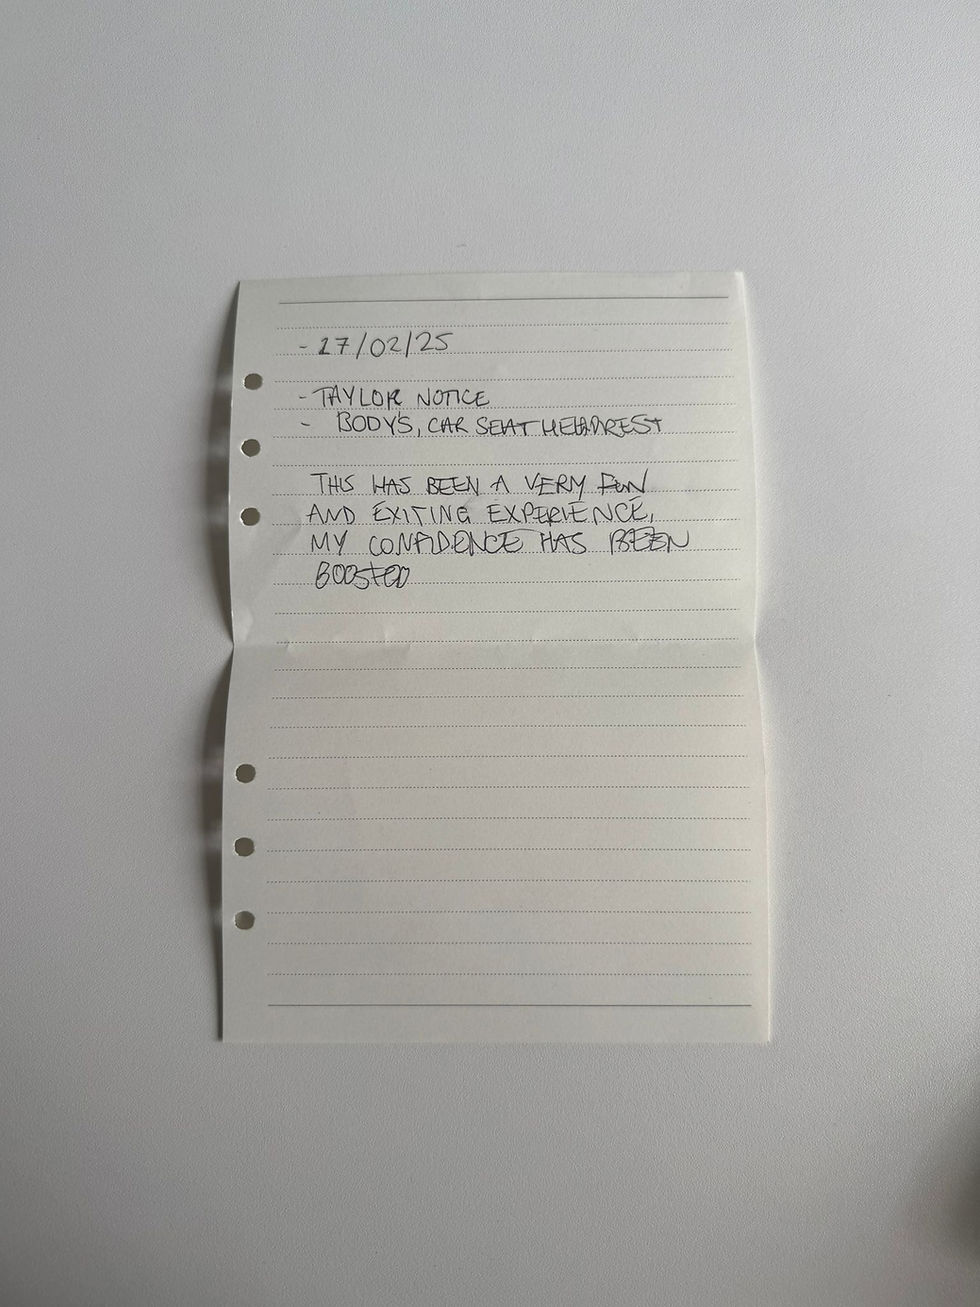 - 17/02/25
- TAYLOR NOTICE
- BODY'S, CAR SEAT HEADREST
THIS HAS BEEN A VERY FUN
AND EXITING EXPERIENCE,
MY CONFIDENCE HAS BEEN
BOOSTED